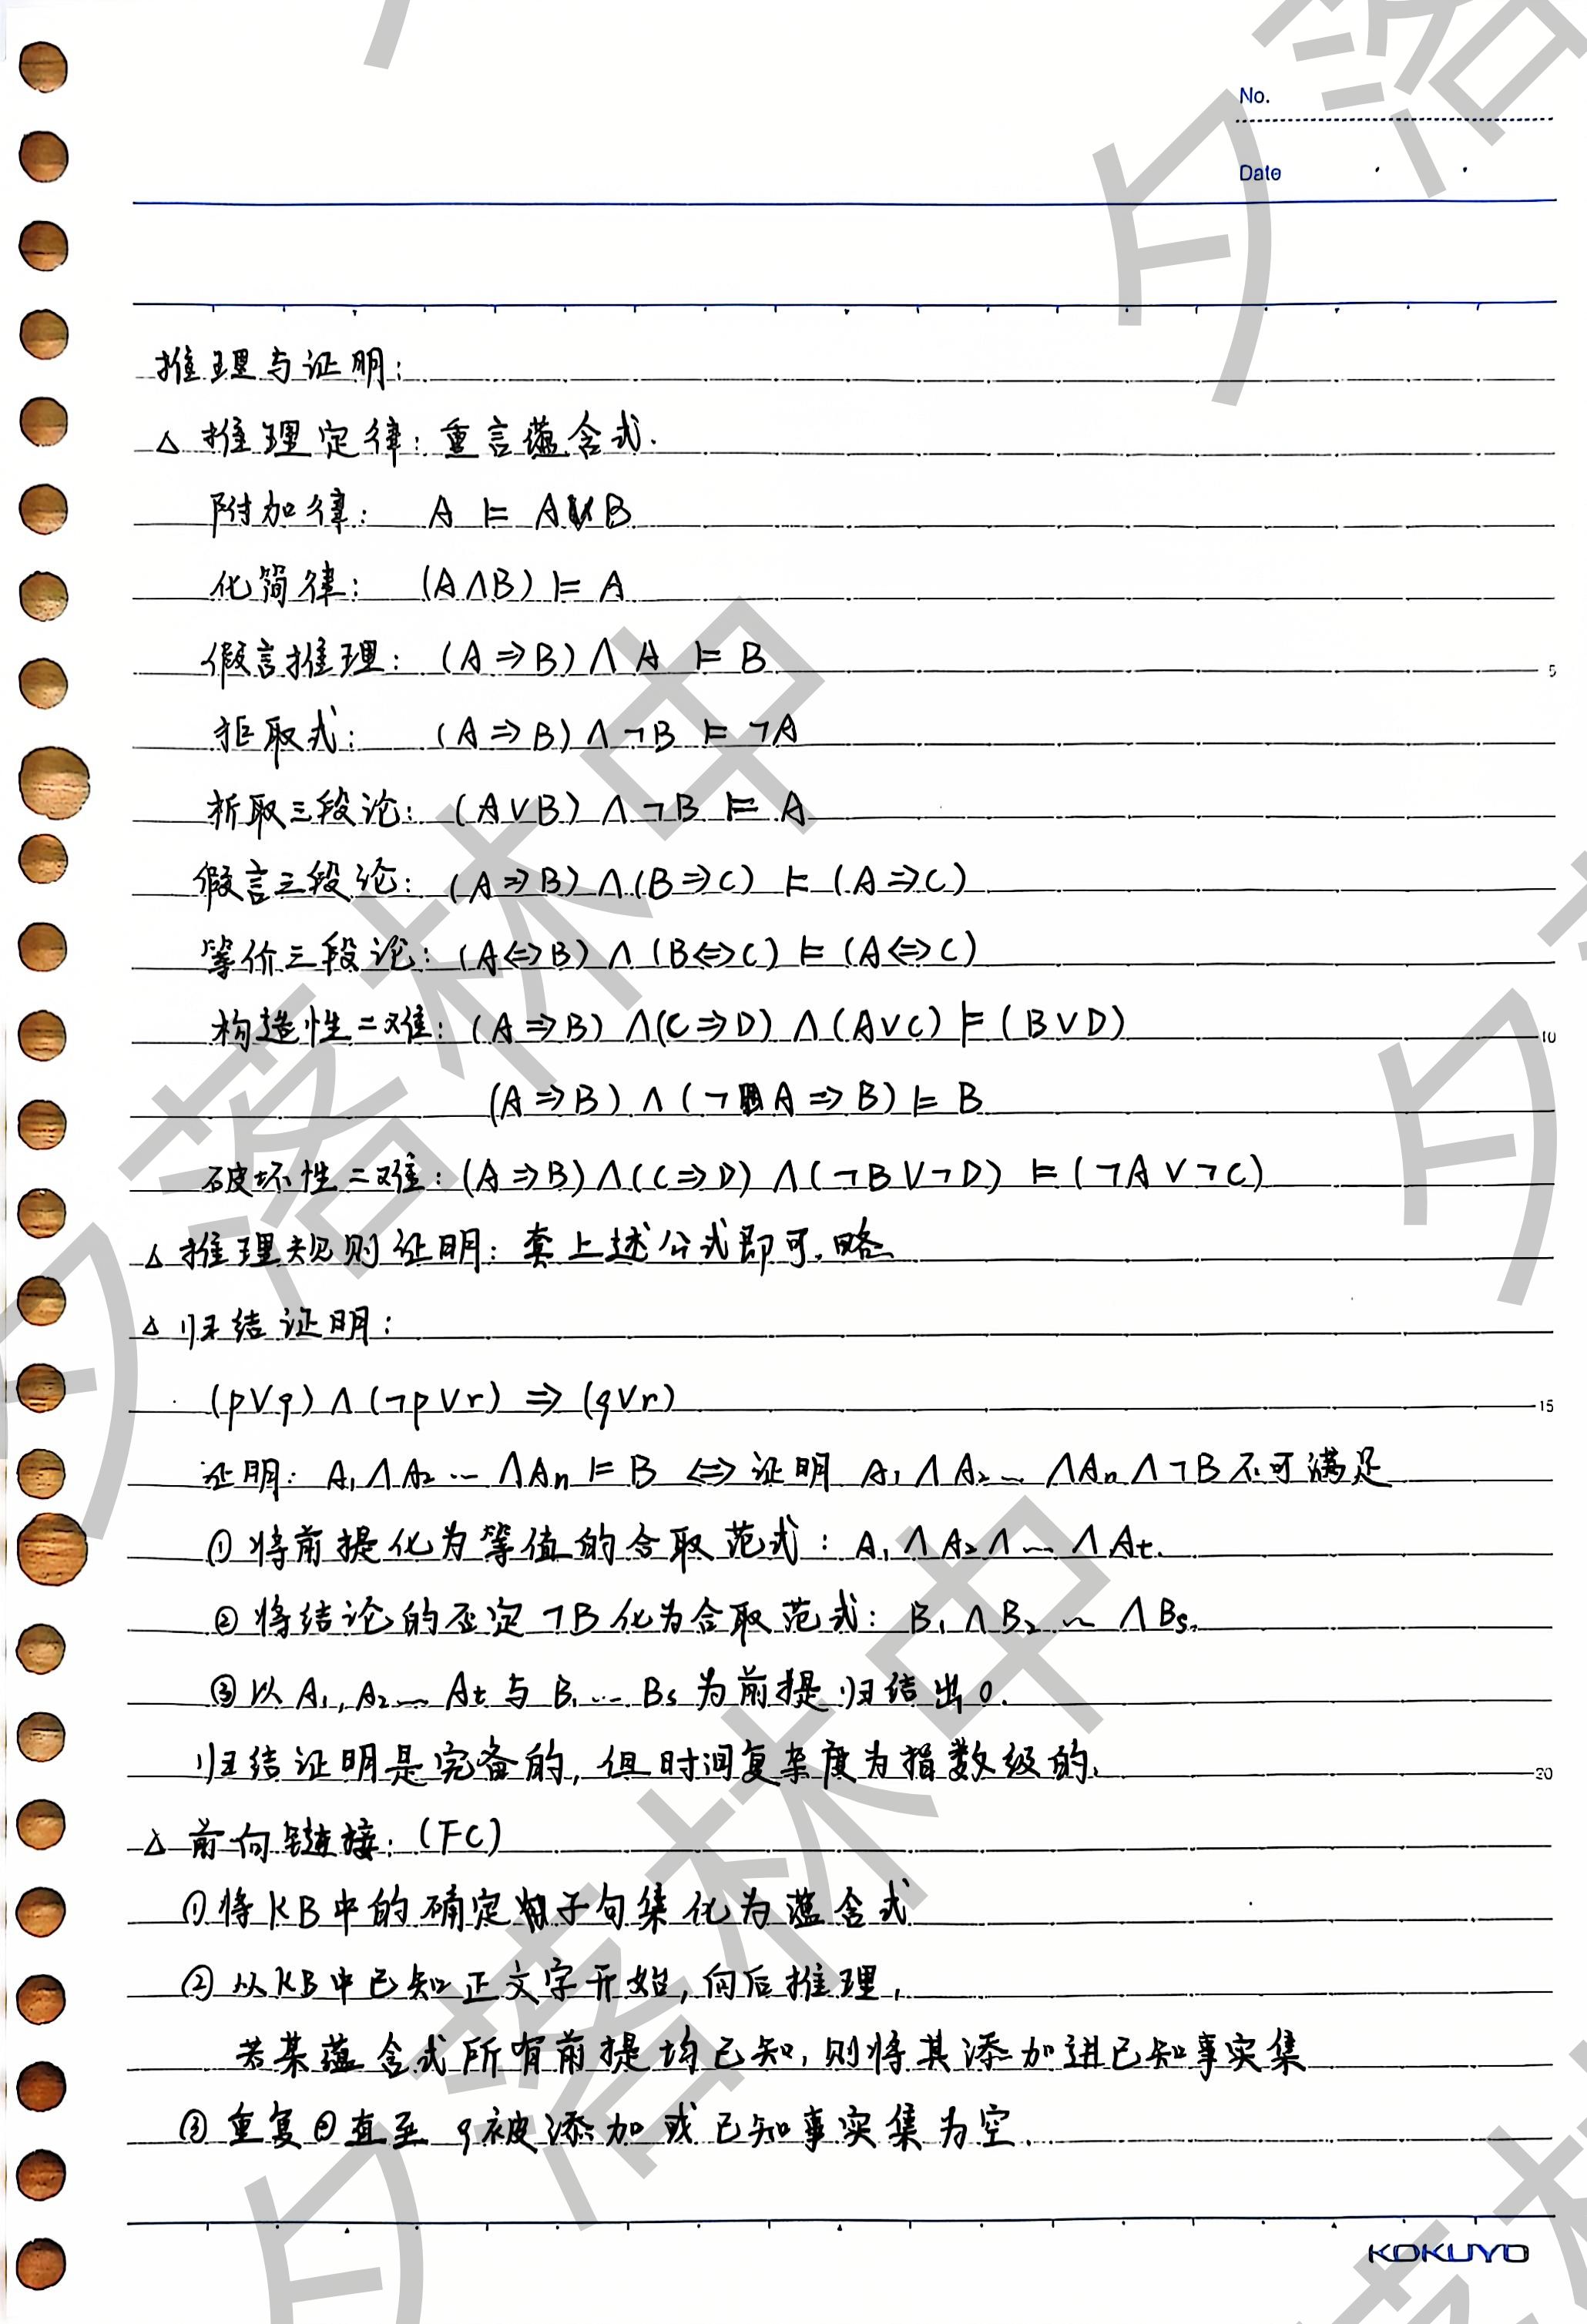 No.
Date
推理与证明:
△ 推理定律: 重言蕴含式.
附加律: A ⊨ A∨B
化简律: (A∧B) ⊨ A
5
假言推理: (A⇒B)∧A ⊨ B
拒取式: (A⇒B)∧¬B ⊨ ¬A
析取三段论: (A∨B)∧¬B ⊨ A
假言三段论: (A⇒B)∧(B⇒C) ⊨ (A⇒C)
等价三段论: (A⇔B)∧(B⇔C) ⊨ (A⇔C)
构造性二难: (A⇒B)∧(C⇒D)∧(A∨C) ⊨ (B∨D)
10
(A⇒B)∧(¬A⇒B) ⊨ B
破坏性二难: (A⇒B)∧(C⇒D)∧(¬B∨¬D) ⊨ (¬A∨¬C)
△ 推理规则证明: 套上述公式即可,略
△ 归结证明:
(p∨q)∧(¬p∨r) ⇒ (q∨r)
15
证明: A₁∧A₂…∧Aₙ ⊨ B ⇔ 证明 A₁∧A₂…∧Aₙ∧¬B 不可满足
① 将前提化为等值的合取范式: A₁∧A₂∧…∧Aₜ.
② 将结论的否定¬B化为合取范式: B₁∧B₂…∧Bₛ.
③ 以A₁,A₂…Aₜ与B₁…Bₛ为前提归结出0.
归结证明是完备的,但时间复杂度为指数级的.
20
△ 前向链接: (FC)
① 将KB中的确定子句集化为蕴含式
② 从KB中已知正文字开始,向后推理,
若某蕴含式所有前提均已知,则将其添加进已知事实集
③ 重复②直至q被添加或已知事实集为空.
KOKUYO
夕落林中
夕落林中